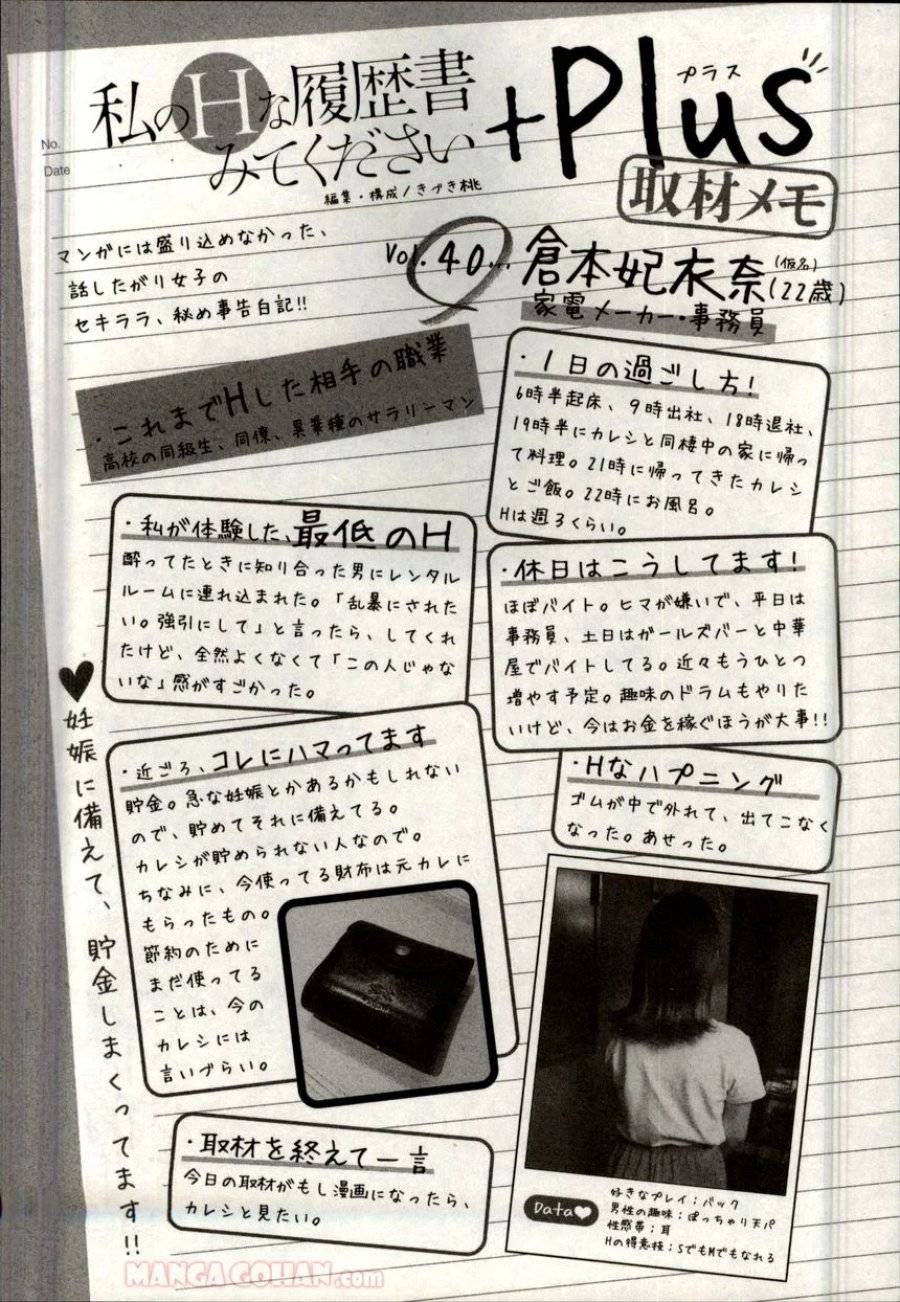 No.
Date
私のHな履歴書
みてください
+Plus
プラス
取材メモ
編集・構成/きづき桃
マンガには盛り込めなかった、
話したがり女子の
セキララ、秘め事告白記!!
Vol.40...
倉本妃衣奈(仮名)(22歳)
家電メーカー・事務員
・これまでHした相手の職業
高校の同級生、同僚、異業種のサラリーマン
・1日の過ごし方!
6時半起床、9時出社、18時退社、
19時半にカレシと同棲中の家に帰っ
て料理。21時に帰ってきたカレシ
とご飯。22時にお風呂。
Hは週3くらい。
・私が体験した、最低のH
酔ってたときに知り合った男にレンタル
ルームに連れ込まれた。「乱暴にされた
い。強引にして」と言ったら、してくれ
たけど、全然よくなくて「この人じゃな
いな」感がすごかった。
・休日はこうしてます!
ほぼバイト。ヒマが嫌いで、平日は
事務員、土日はガールズバーと中華
屋でバイトしてる。近々もうひとつ
増やす予定。趣味のドラムもやりた
いけど、今はお金を稼ぐほうが大事!!
・近ごろ、コレにハマってます
貯金。急な妊娠とかあるかもしれない
ので、貯めてそれに備えてる。
カレシが貯められない人なので。
ちなみに、今使ってる財布は元カレに
もらったもの。
節約のために
まだ使ってる
ことは、今の
カレシには
言いづらい。
・Hなハプニング
ゴムが中で外れて、出てこなく
なった。あせった。
♥妊娠に備えて、貯金しまくってます!!
・取材を終えて一言
今日の取材がもし漫画になったら、
カレシと見たい。
Data♥
好きなプレイ:バック
男性の趣味:ぽっちゃり天パ
性感帯:耳
Hの得意技:SでもMでもなれる
MANGAGOHAN.com